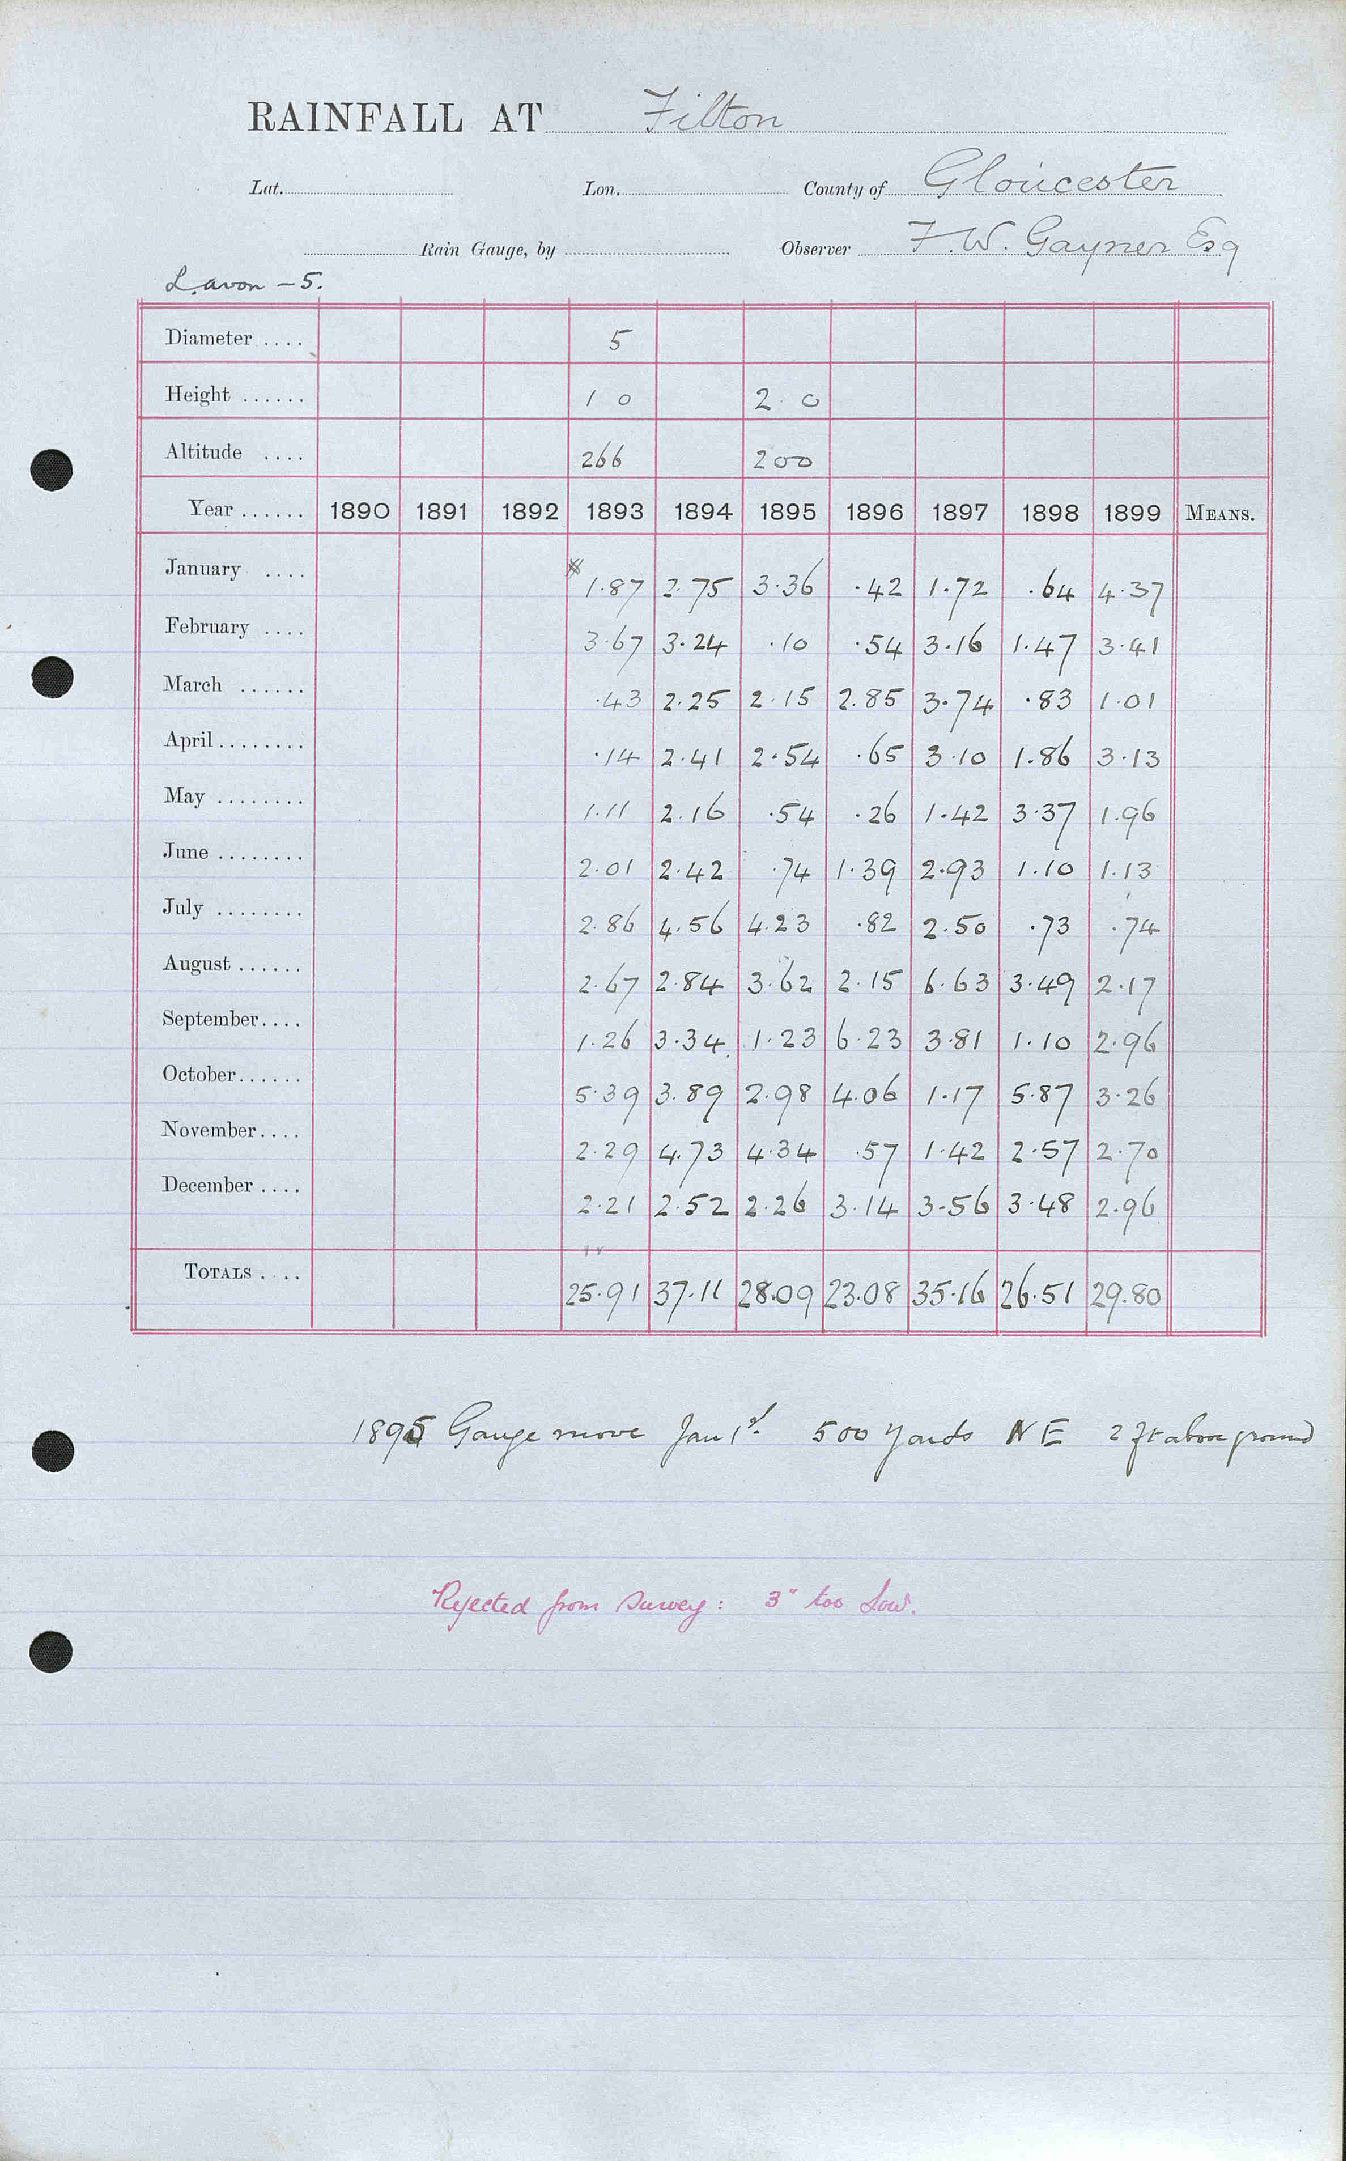 RAINFALL AT Filton
Lat. Lon. County of Gloucester
Rain Gauge, by Observer F. W. Gayner Esq
L. avon - 5.
Diameter .... 5
Height ...... 1 0 2 0
Altitude .... 266 200
Year ...... 1890 1891 1892 1893 1894 1895 1896 1897 1898 1899 MEANS.
January .... * 1.87 2.75 3.36 .42 1.72 .64 4.37
February .... 3.67 3.24 .10 .54 3.16 1.47 3.41
March ...... .43 2.25 2.15 2.85 3.74 .83 1.01
April ........ .14 2.41 2.54 .65 3.10 1.86 3.13
May ........ 1.11 2.16 .54 .26 1.42 3.37 1.96
June ........ 2.01 2.42 .74 1.39 2.93 1.10 1.13
July ........ 2.86 4.56 4.23 .82 2.50 .73 .74
August ...... 2.67 2.84 3.62 2.15 6.63 3.49 2.17
September.... 1.26 3.34 1.23 6.23 3.81 1.10 2.96
October...... 5.39 3.89 2.98 4.06 1.17 5.87 3.26
November.... 2.29 4.73 4.34 .57 1.42 2.57 2.70
December .... 2.21 2.52 2.26 3.14 3.56 3.48 2.96
TOTALS .... 25.91 37.11 28.09 23.08 35.16 26.51 29.80
1895 Gauge move Jan 1st. 500 yards NE 2 ft above ground
Rejected from Survey: 3" too low.